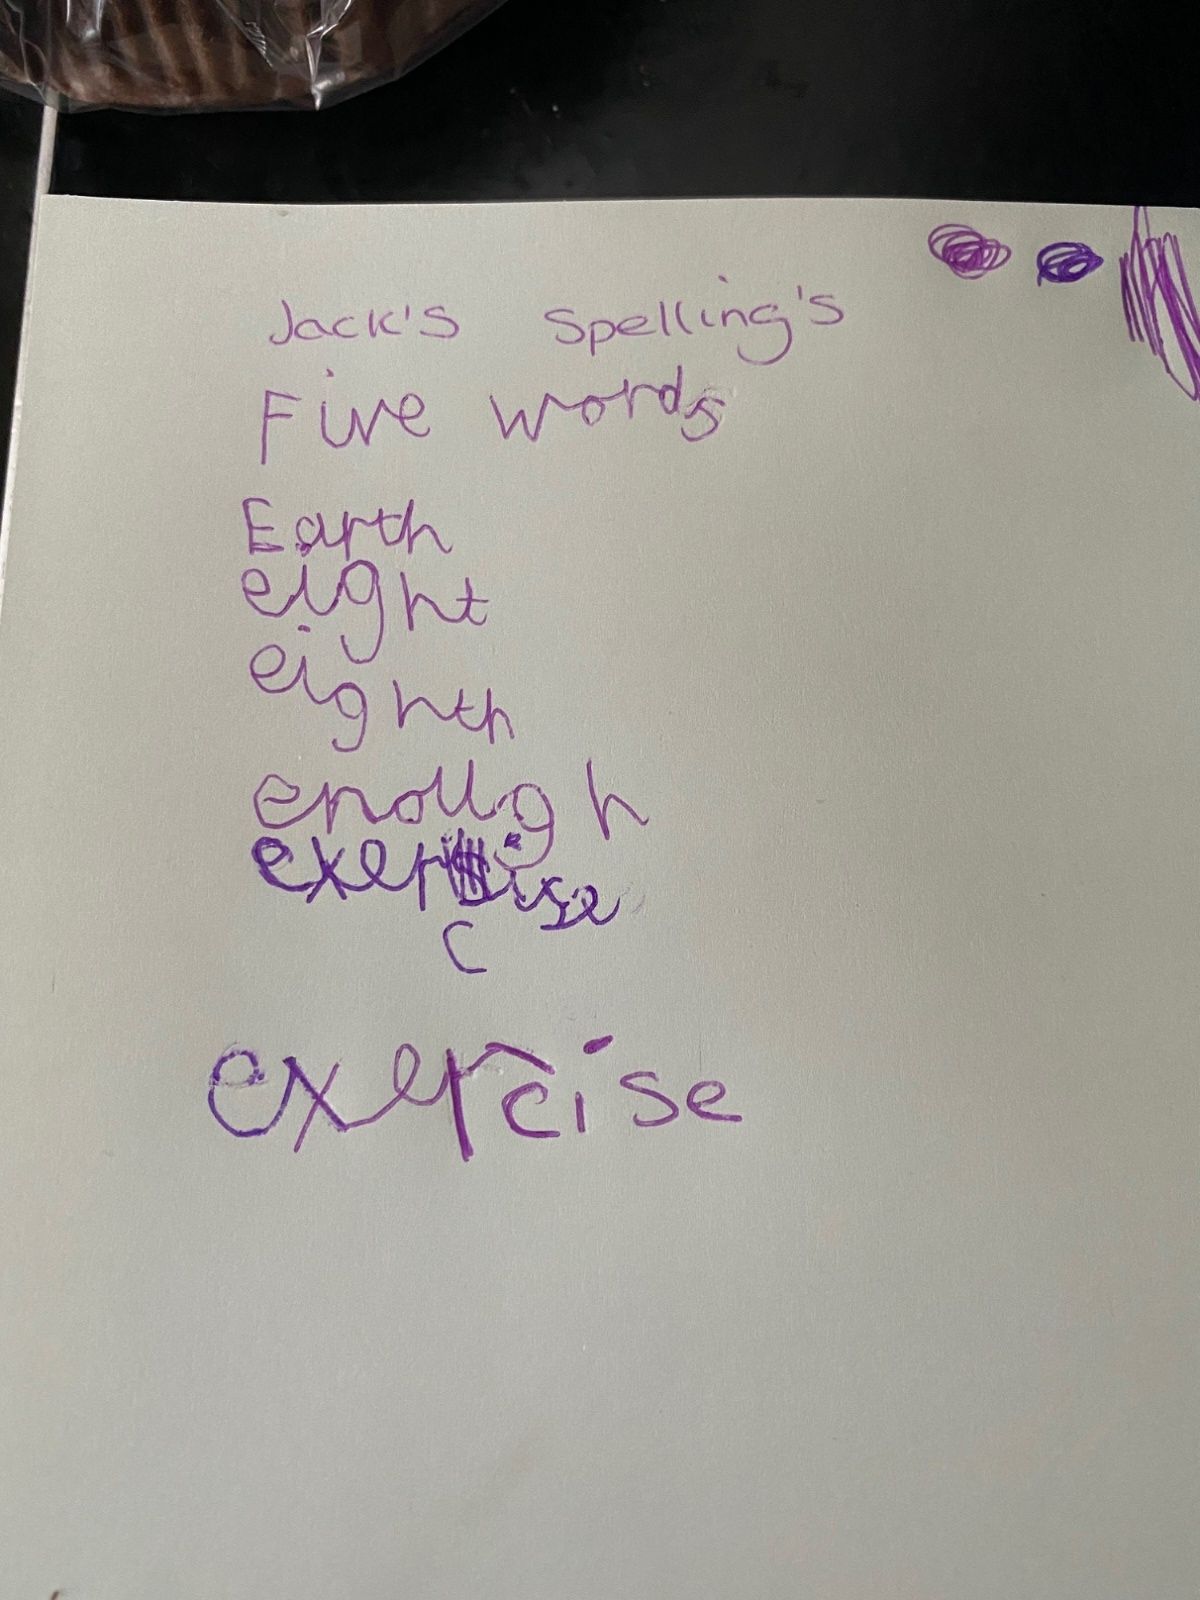 Jack's Spelling's
Five words
Earth
eight
eighth
enough
exercise
c
exercise